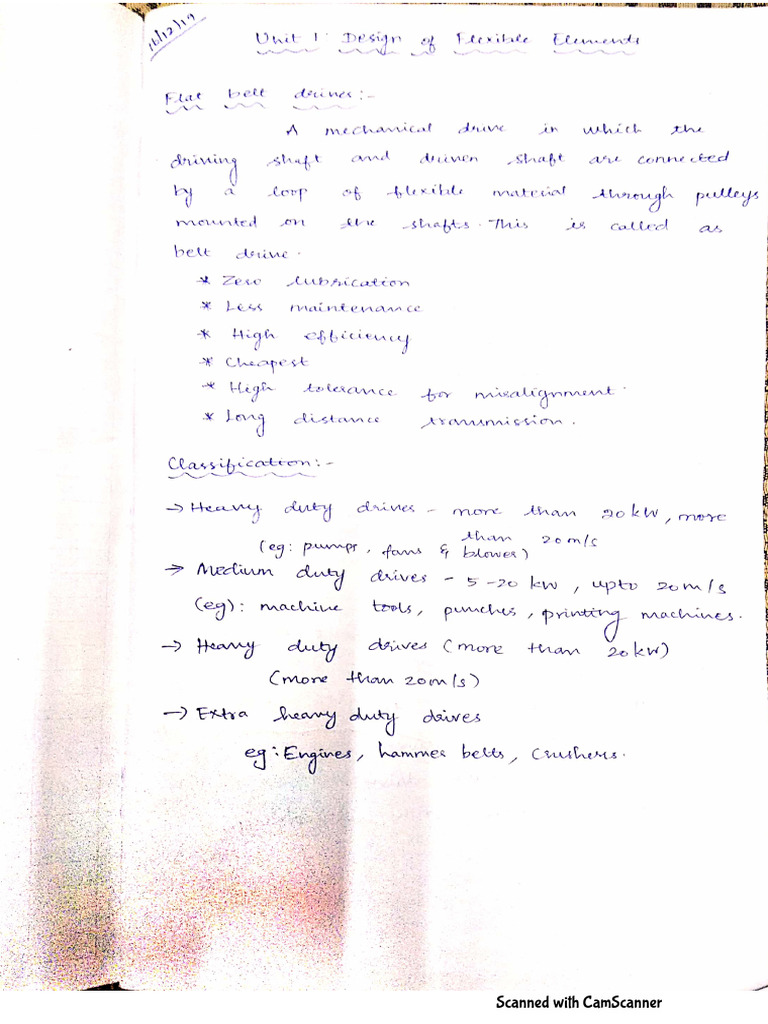 16/12/19
Unit 1: Design of Flexible Elements
Flat belt drives:-
A mechanical drive in which the
driving shaft and driven shaft are connected
by a loop of flexible material through pulleys
mounted on the shafts. This is called as
belt drive.
* Zero lubrication
* Less maintenance
* High efficiency
* Cheapest
* High tolerance for misalignment.
* Long distance transmission.
Classification:-
→ Heavy duty drives - more than 20kW, more
than 20m/s
(eg: pumps, fans & blower)
→ Medium duty drives - 5-20 kw, upto 20m/s
(eg): machine tools, punches, printing machines.
→ Heavy duty drives (more than 20kW)
(more than 20m/s)
→ Extra heavy duty drives
eg: Engines, hammer belts, Crushers.
Scanned with CamScanner